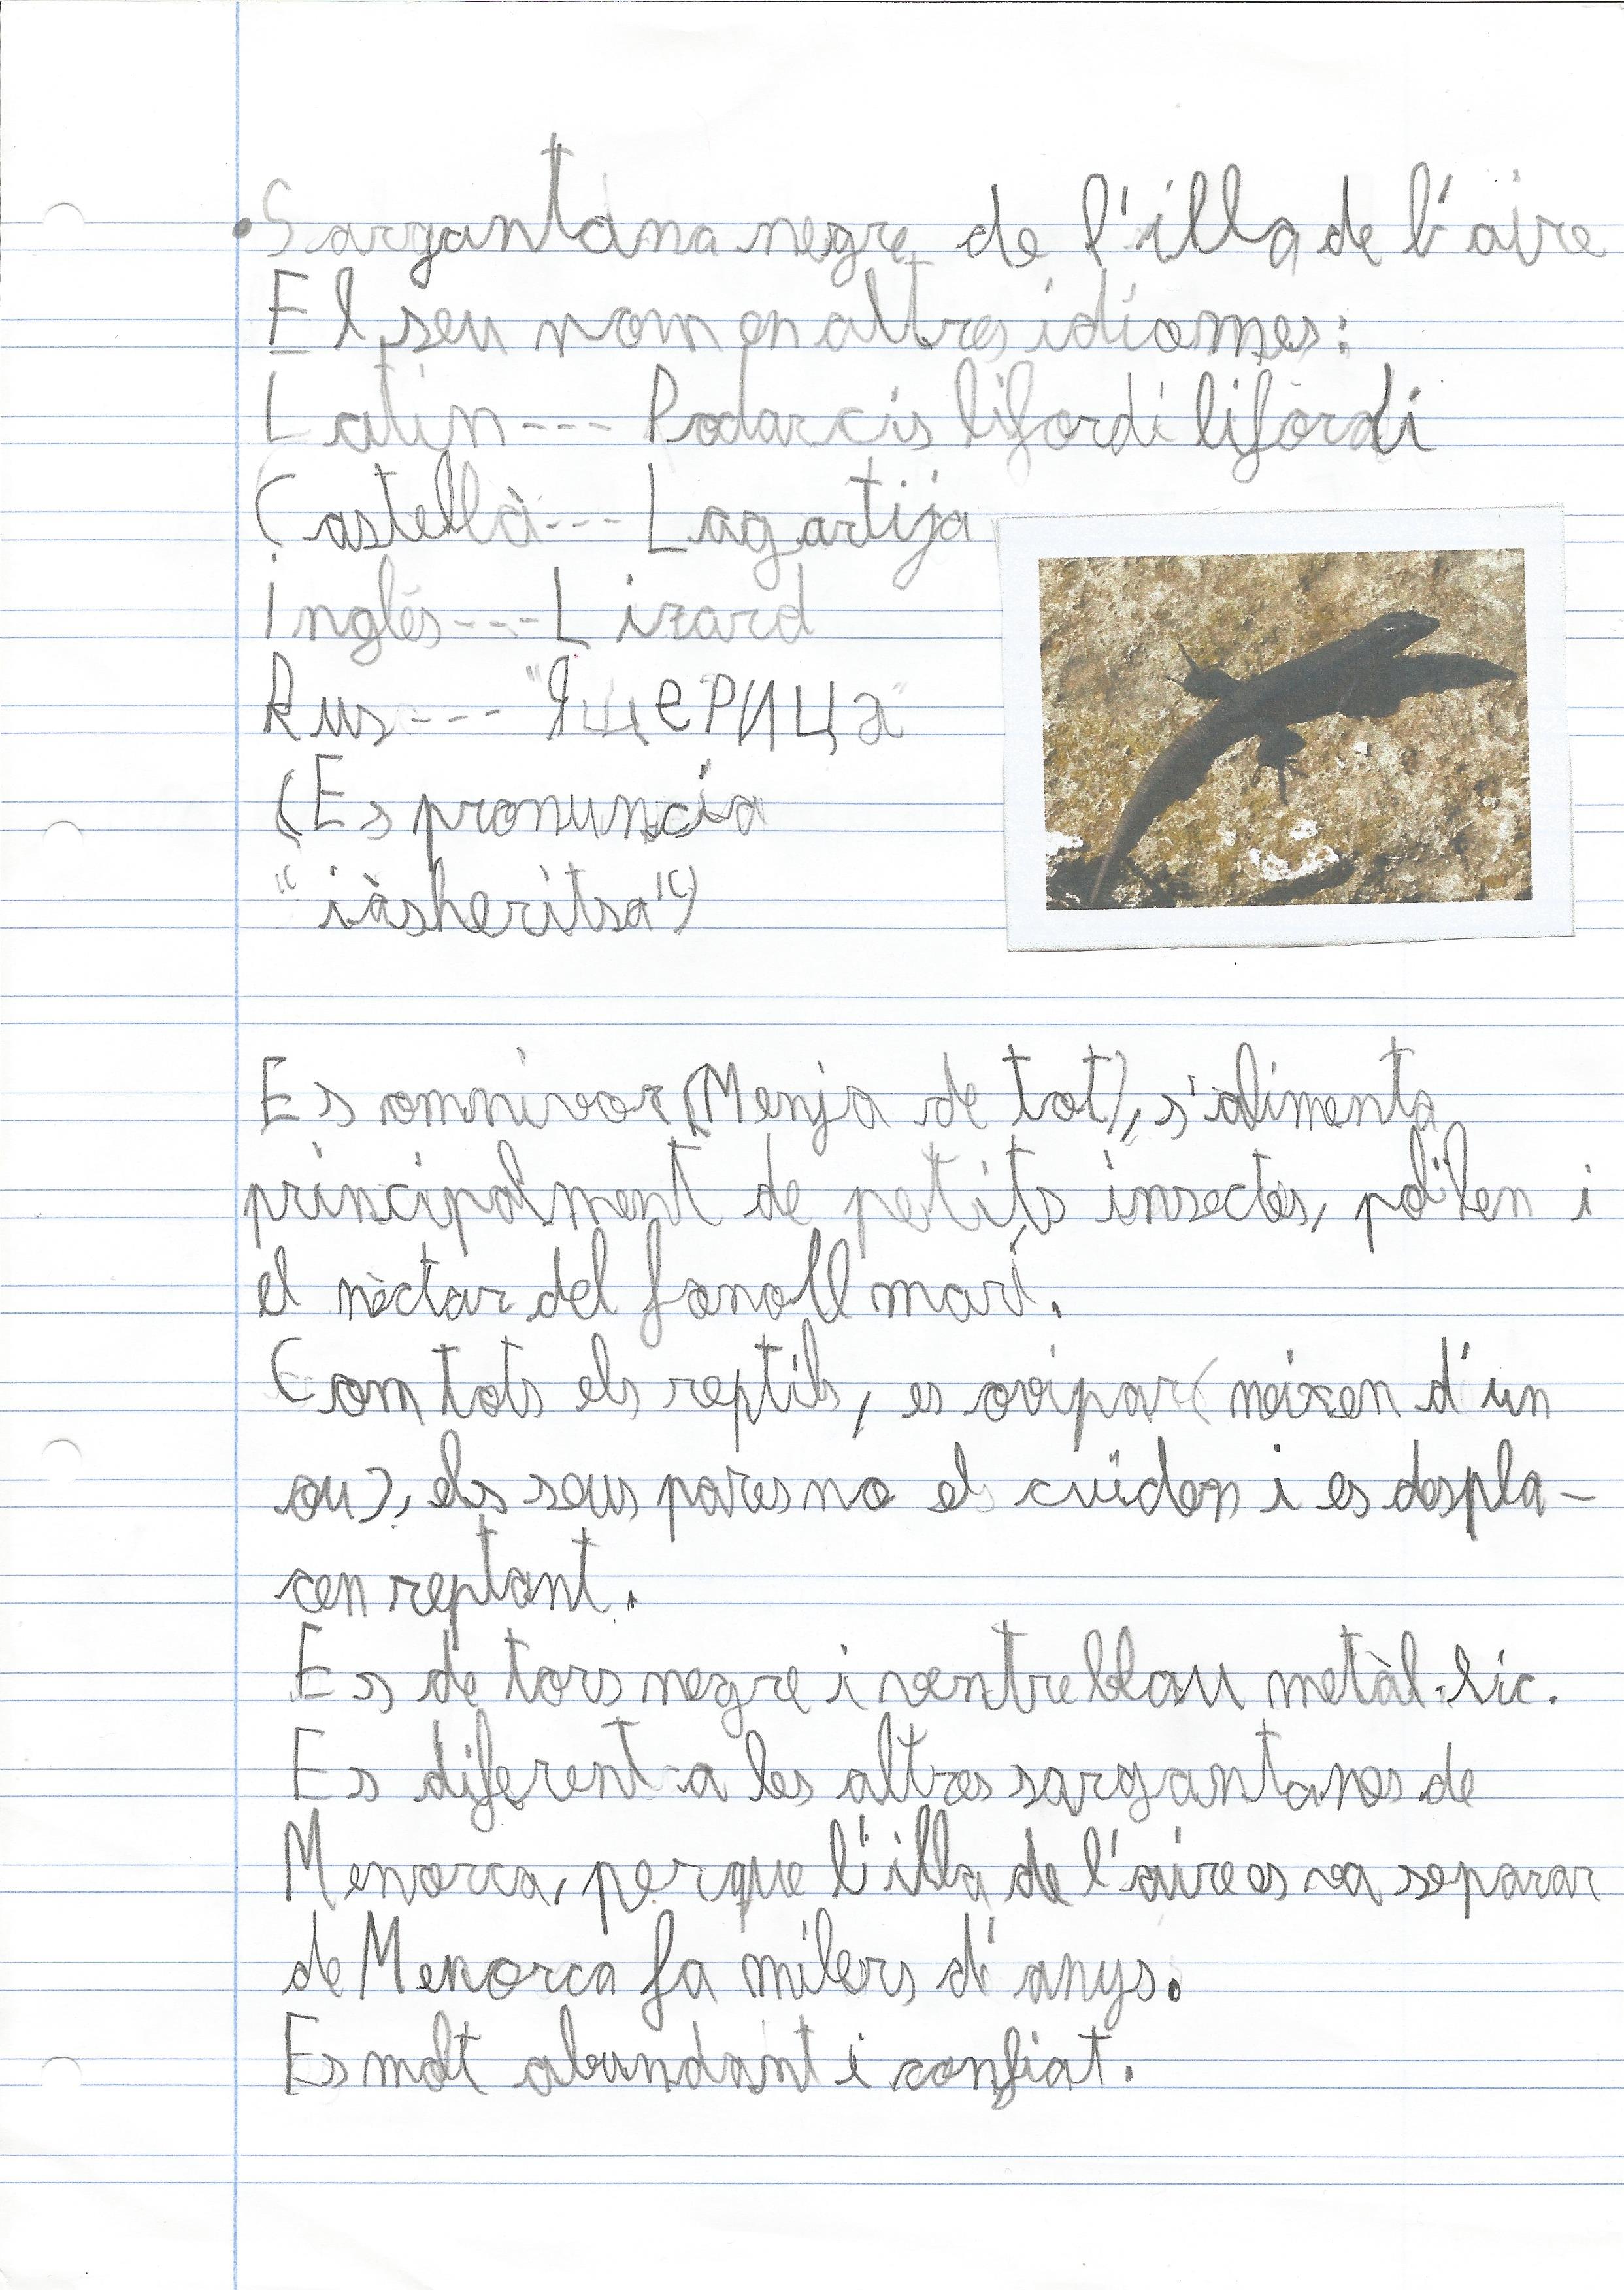 •Sargantana negre de l'illa de l'aire
El seu nom en altres idiomes:
Latin --- Podarcis lifordi lifordi
Castellà --- Lagartija
inglés --- Lizard
Rus --- "Ящерица"
(Es pronuncia
"iàsheritsa")
Es omnivor (Menja de tot), s'alimenta
principalment de petits insectes, pol·len i
el nèctar del fonoll marí.
Com tots els reptils, es ovipar (neixen d'un
ou), els seus pares no els cuiden i es despla-
cen reptant.
Es de tors negre i ventre blau metàl·lic.
Es diferent a les altres sargantanes de
Menorca, perque l'illa de l'aire es va separar
de Menorca fa milers d'anys.
Es molt abundant i confiat.